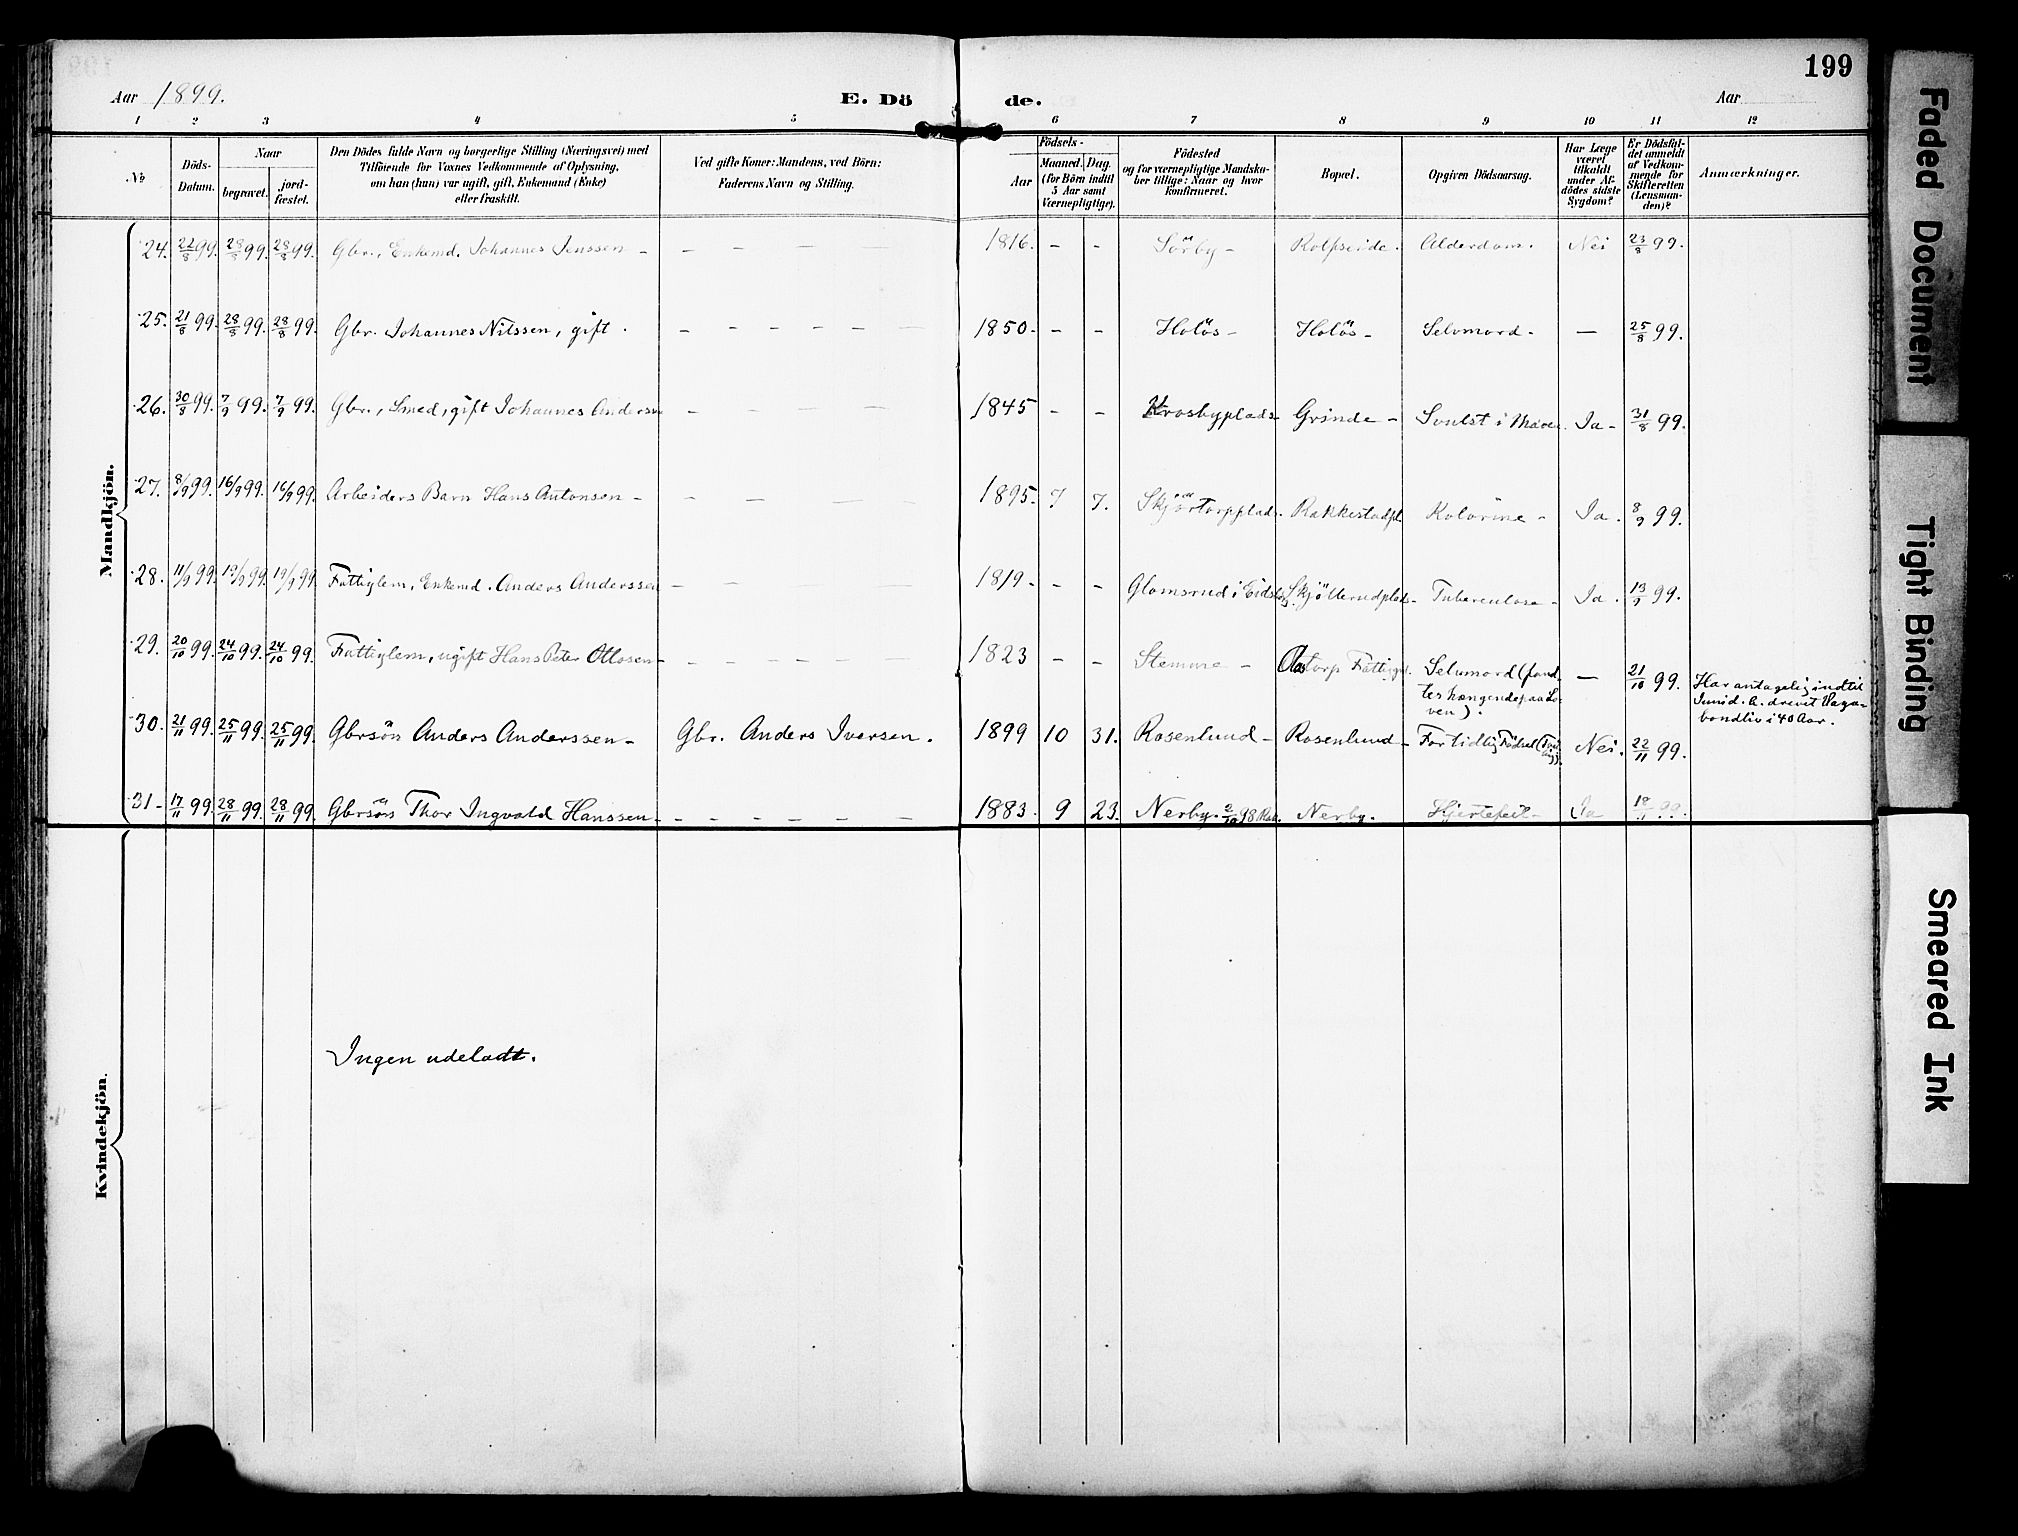 199
Aar 1899.
E. Dö de.
Aar
1 2 3 4 5 6 7 8 9 10 11 12
No
Döds-Datum.
Naar
begravet.
jord-fæstet.
Den Dödes fulde Navn og borgerlige Stilling (Næringsvei) med
Tilföiende for Voxnes Vedkommende af Oplysning,
om han (hun) var ugift, gift, Enkemand (Enke)
eller fraskilt.
Ved gifte Koner: Mandens, ved Börn:
Faderens Navn og Stilling.
Födsels-
Aar
Maaned. Dag.
(for Börn indtil
5 Aar samt
Værnepligtige).
Födested
og for værnepligtige Mandska-
ber tillige: Naar og hvor
konfirmeret.
Bopæl.
Opgiven Dödsaarsag.
Har Læge
været
tilkaldt
under Af-
dödes sidste
Sygdom?
Er Dödsfal-
det anmeldt
af Vedkom-
mende for
Skifteretten
(Lensman-
den)?
Anmærkninger.
Mandkjön.
24. 22/8 99. 28/8 99. 28/8 99. Gbr., Enkemd. Johannes Jenssen - - - - - 1816. - - Sörby - Rolfseide. Alderdom. Nei 23/8 99.
25. 21/8 99. 28/8 99. 28/8 99. Gbr. Johannes Nilssen, gift. - - - - - 1850. - - Holös - Holös - Selvmord. - 25/8 99.
26. 30/8 99. 7/9 99. 7/9 99. Gbr., Smed, gift Johannes Anderssen - - - - 1845 - - Krosbyplads. Grinde - Svulst i Maven. Ja - 31/8 99.
27. 8/9 99. 16/9 99. 16/9 99. Arbeiders Barn Hans Antonsen - - - - 1895. 7 7. Skjörtorpplads. Rakkestadpl. Kolerine - Ja. 8/9 99.
28. 11/9 99. 19/9 99. 19/9 99. Fattiglem, Enkemd. Anders Anderssen - - 1819 - - - Glomsrud i Eidsberg. Skjöllerudplads - Tuberculose - Ja. 13/9 99.
29. 20/10 99. 24/10 99. 24/10 99. Fattiglem, ugift Hans Peter Ottosen - - - - - - 1823 - - Stemme - Aastorp Fattiggd. Selvmord (fund-
tes hængende paa Lo-
ven). - 21/10 99. Har antagelig indtil
Juni d. A. drevet Vaga-
bondliv i 40 Aar.
30. 21/11 99. 25/11 99. 25/11 99. Gbrsön Anders Anderssen - Gbr. Anders Iversen. 1899 10 31. Rosenlund - Rosenlund - For tidlig Födsel (Tvilling). Nei. 22/11 99.
31 - 17/11 99. 28/11 99. 28/11 99. Gbrsön Thor Ingvald Hanssen - - - - - - 1883. 9 23. Nerby. 2/10 98 Rak. Nerby. Hjertefeil - Ja 18/11 99.
Kvindekjön.
Ingen udeladt.
Faded Document
Tight Binding
Smeared Ink